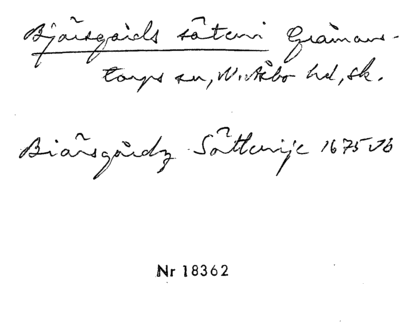 Bjärsgårds säteri Gråmans-
torps sn, N. Åsbo hd, sk.
Biärsgårdz Sätterije 1675 Jb
Nr 18362